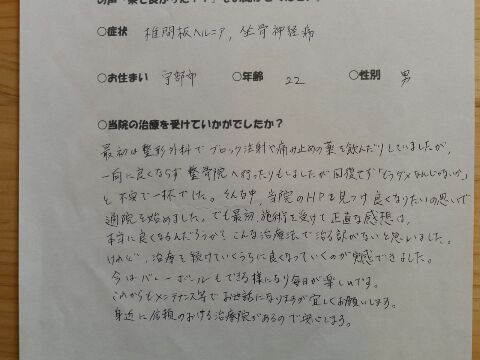 ○症状 椎間板ヘルニア, 坐骨神経痛
○お住まい 宇部市 ○年齢 22 ○性別 男
○当院の治療を受けていかがでしたか?
最初は整形外科でブロック注射や痛み止めの薬を飲んだりしていましたが、
一向に良くならず整骨院へ行ったりもしましたが回復せず「もうダメなんじゃないか」
と不安で一杯でした。そんな中、当院のHPを見つけ良くなりたいの思いで
通院を始めました。でも最初、施術を受けて正直な感想は、
本当に良くなるんだろうか?こんな治療法で治る訳がないと思いました。
けれど、治療を続けていくうちに良くなっていくのが実感できました。
今はバレーボールもできる様になり毎日が楽しいです。
これからもメンテナンス等でお世話になりますが宜しくお願いします。
身近に信頼のおける治療院があるので安心します。